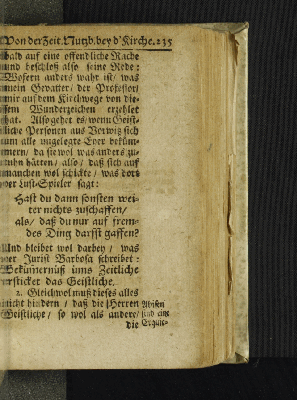 Von der Zeit. Nutzb. bey d' Kirche. 235
bald auf eine offendliche Rache
und beschloß also seine Rede:
Wofern anders wahr ist/ was
mein Gevatter/ der Professor/
mir auf dem Kirchwege von die-
sem Wunderzeichen erzehlet
hat. Also gehet es/ wenn Geist-
liche Personen aus Vorwitz sich
um alle ungelegte Eyer beküm-
mern/ da sie wol was anders zu-
thun hätten/ also/ daß sich auf
manchen wol schickte/ was dort
der Lust-Spieler sagt:
Hast du dann sonsten wei-
ter nichts zuschaffen/
als/ daß du nur auf frem-
des Ding darffst gaffen?
Und bleibet wol darbey/ was
der Jurist Barbosa schreibet:
Bekümernüß ums Zeitliche
ersticket das Geistliche.
2. Gleichwol muß dieses alles
nicht hindern/ daß die Herren
Geistliche/ so wol als andere/
die
sind eine